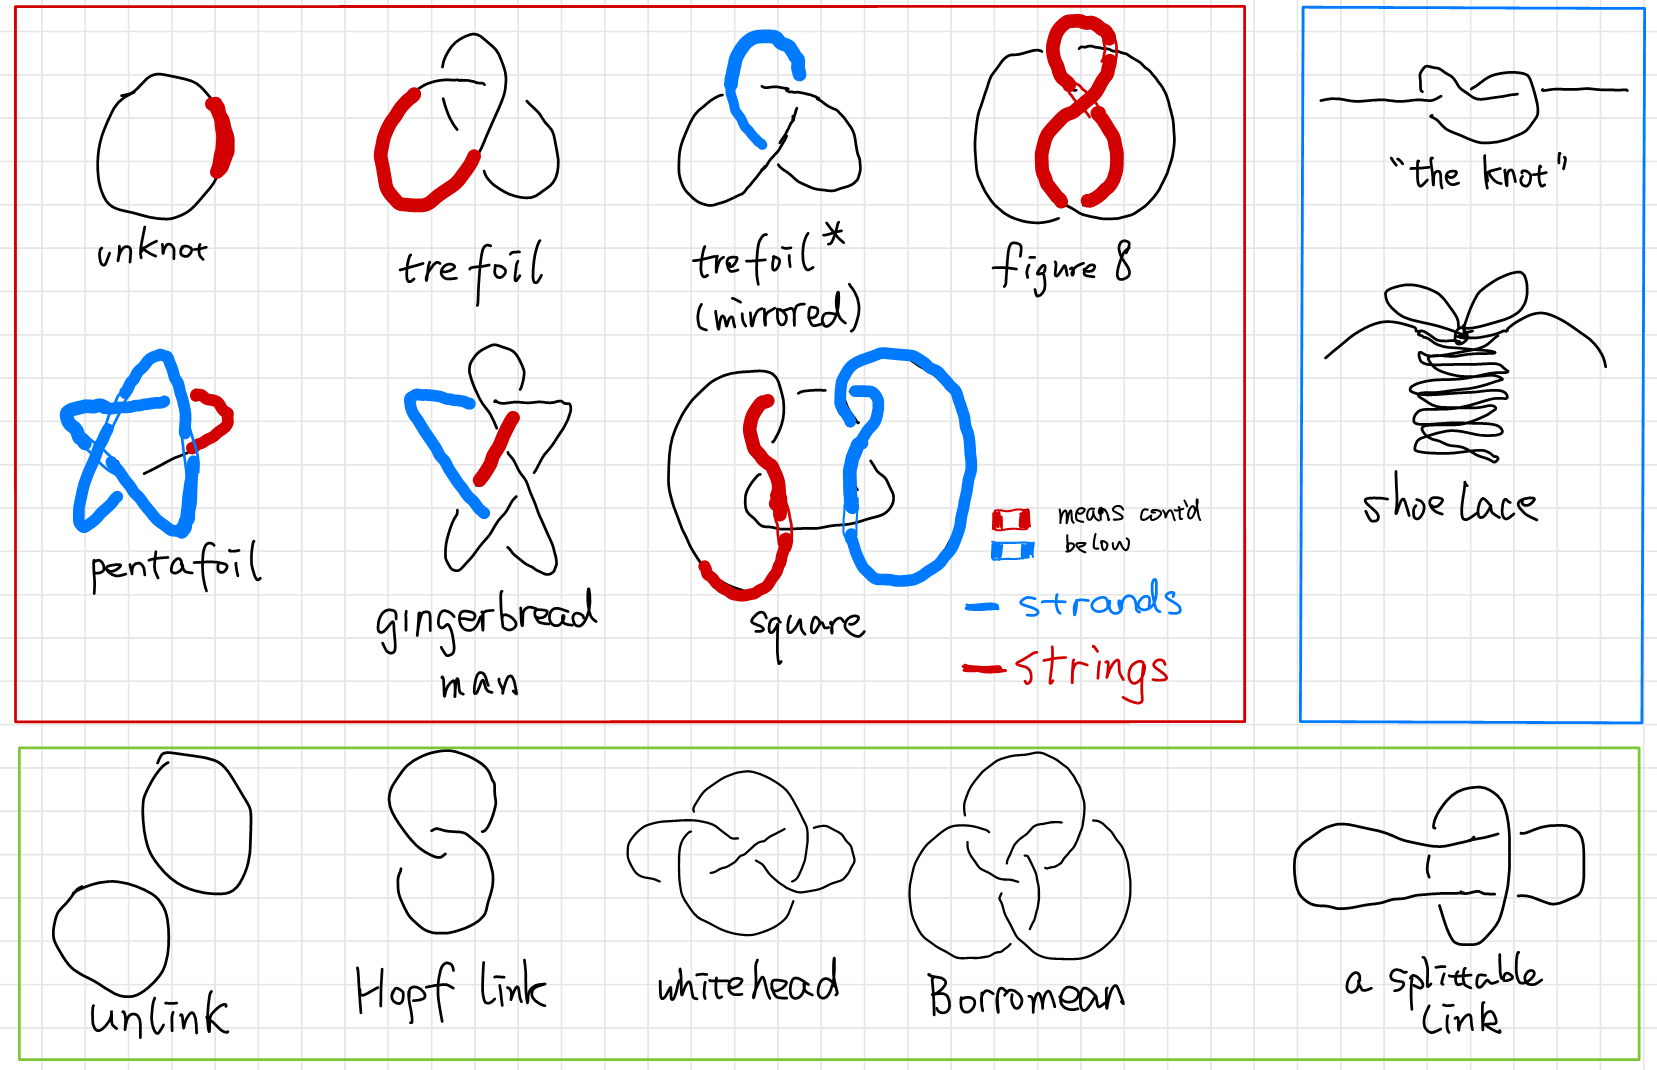 unknot
trefoil
trefoil*
(mirrored)
figure 8
"the knot"
pentafoil
gingerbread
man
square
means cont'd
below
strands
strings
shoelace
unlink
Hopf link
whitehead
Borromean
a splittable
link